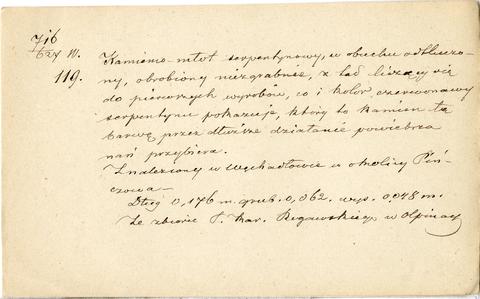 716
627 W.
119.
Kamienio-młot serpentynowy, w obuchu odtłuczo-
ny, obrobiony niezgrabnie, z tąd liczący się
do pierwotnych wyrobów, co i kolor czerwonawy
serpentynu pokazuje, który to kamień tą
barwę przez dłuższe działanie powietrza
nań przybiera.
Znaleziony w Węchadłowie w okolicy Piń-
czowa.
Dług 0,176 m. grub. 0,062. wys. 0,048 m.
Ze zbioru P. Kar. Rogawskiego w Ołpinach